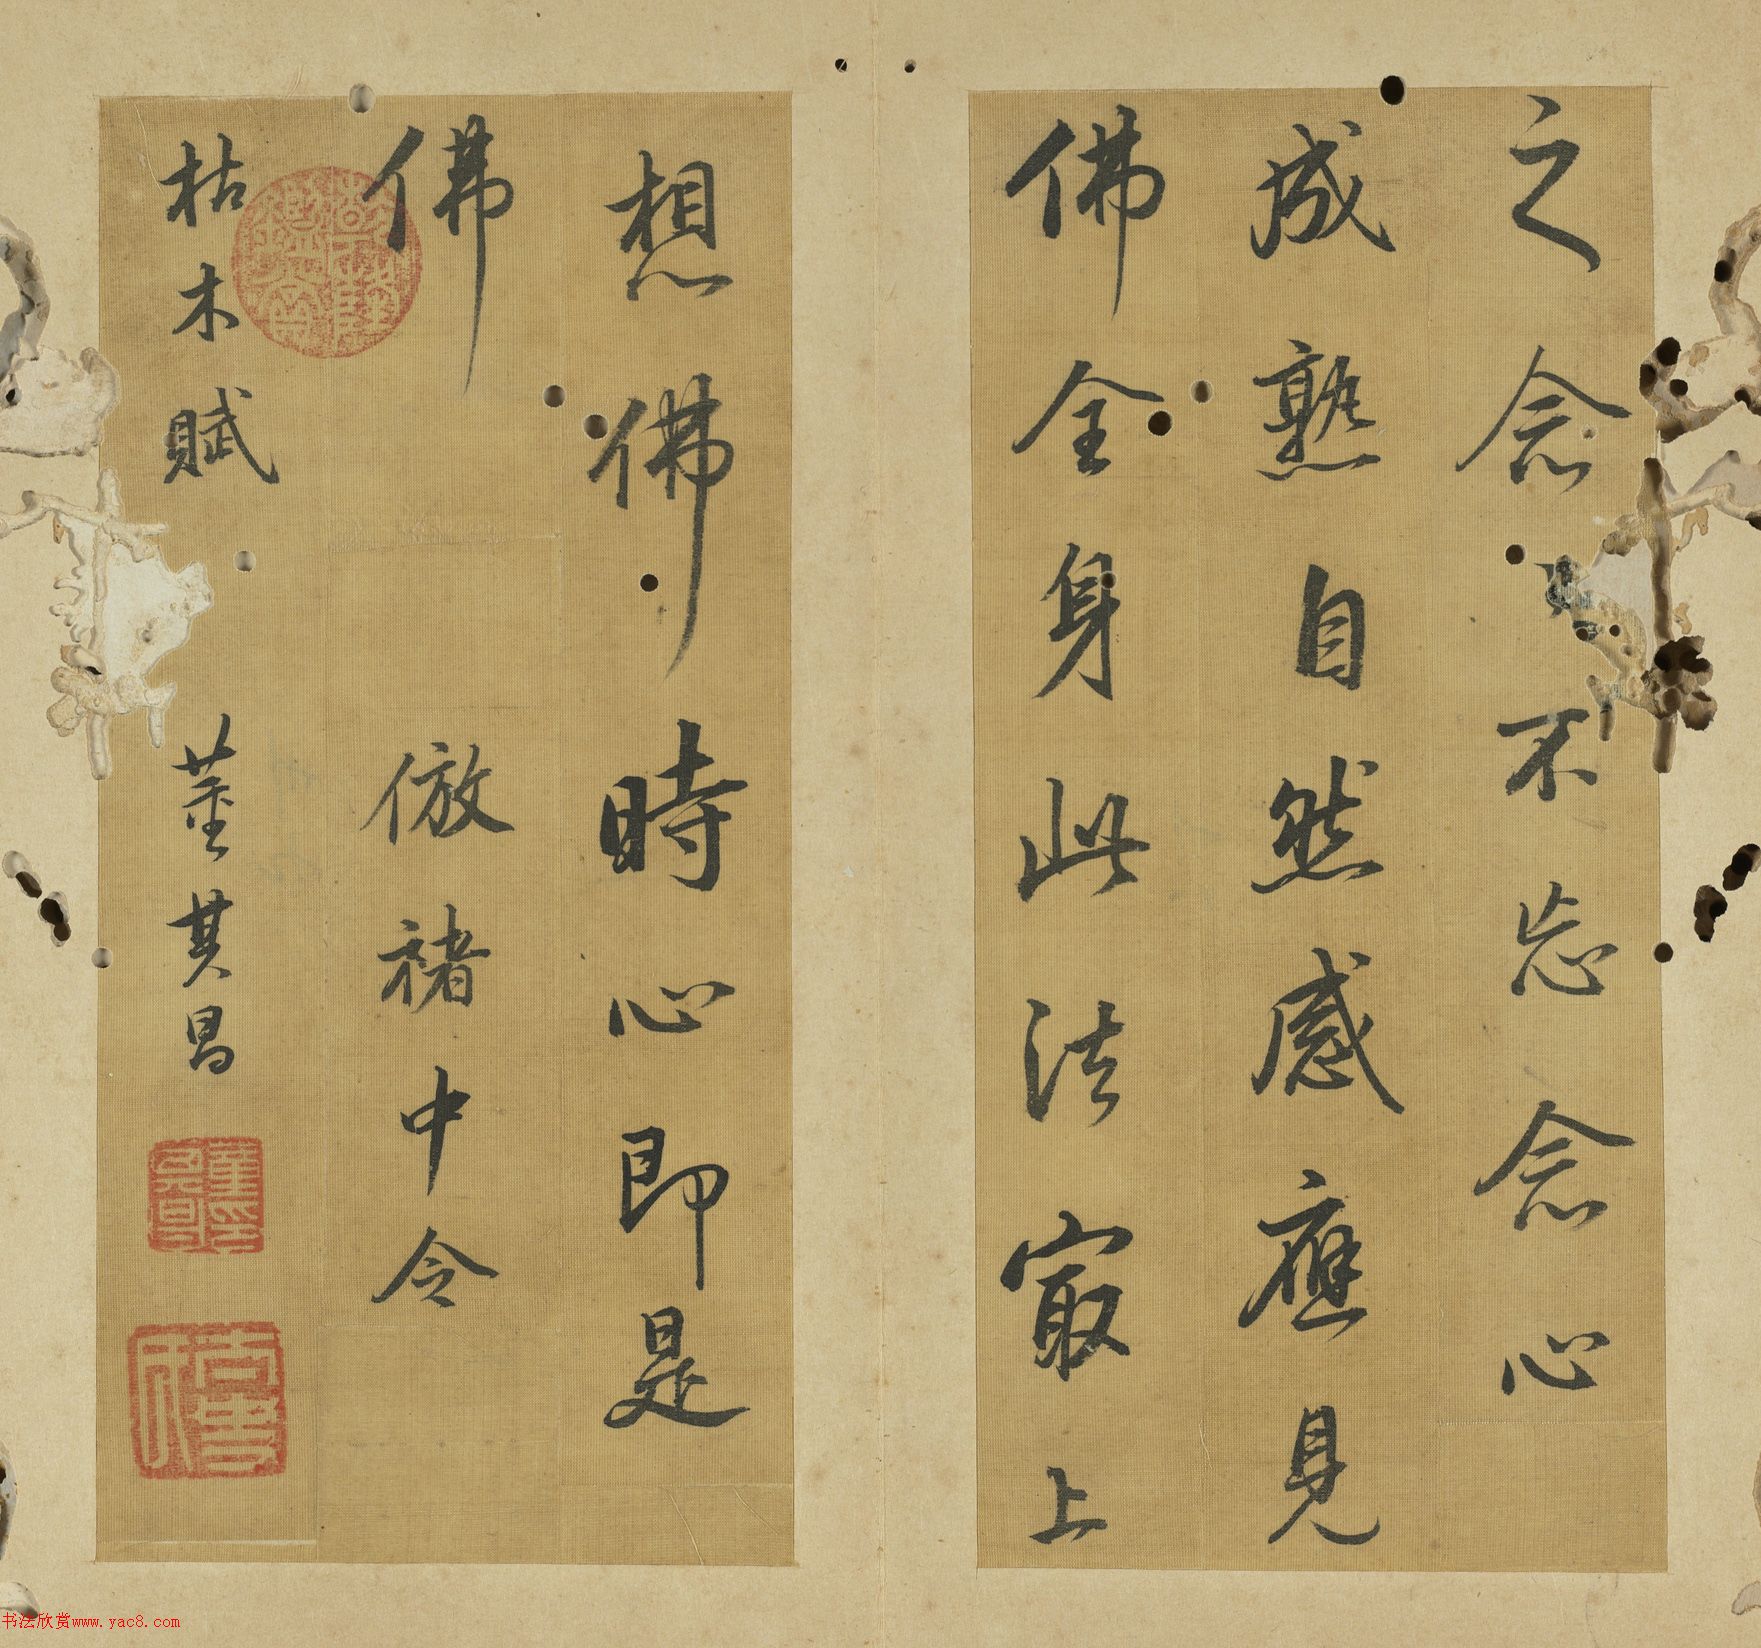 之念
不忘念心
成熟自然感應見
佛全身此法㝡上
想佛時心即是
佛 倣褚中令
枯木賦 董其昌
書法欣賞www.yac8.com